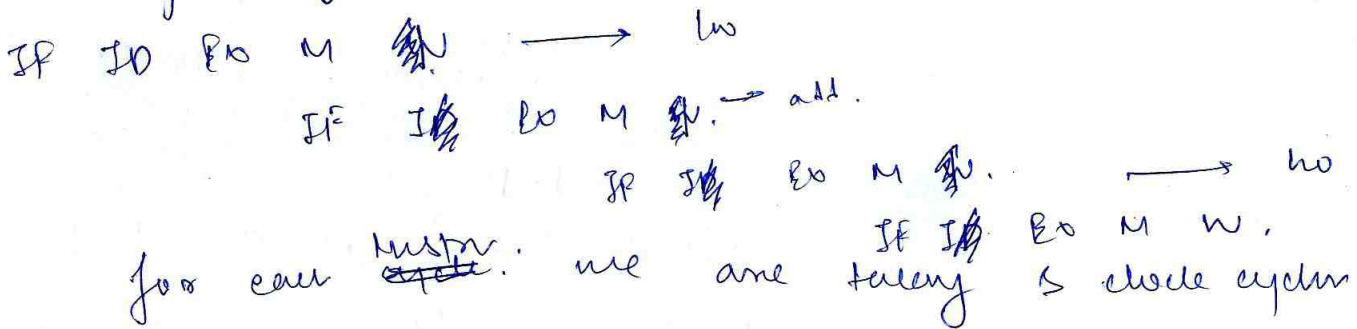 IF ID EX M W. → lw
IF ID EX M W. → add.
IF ID EX M W. → lw
IF ID EX M W.
for each instr: we are taking 5 clock cycles